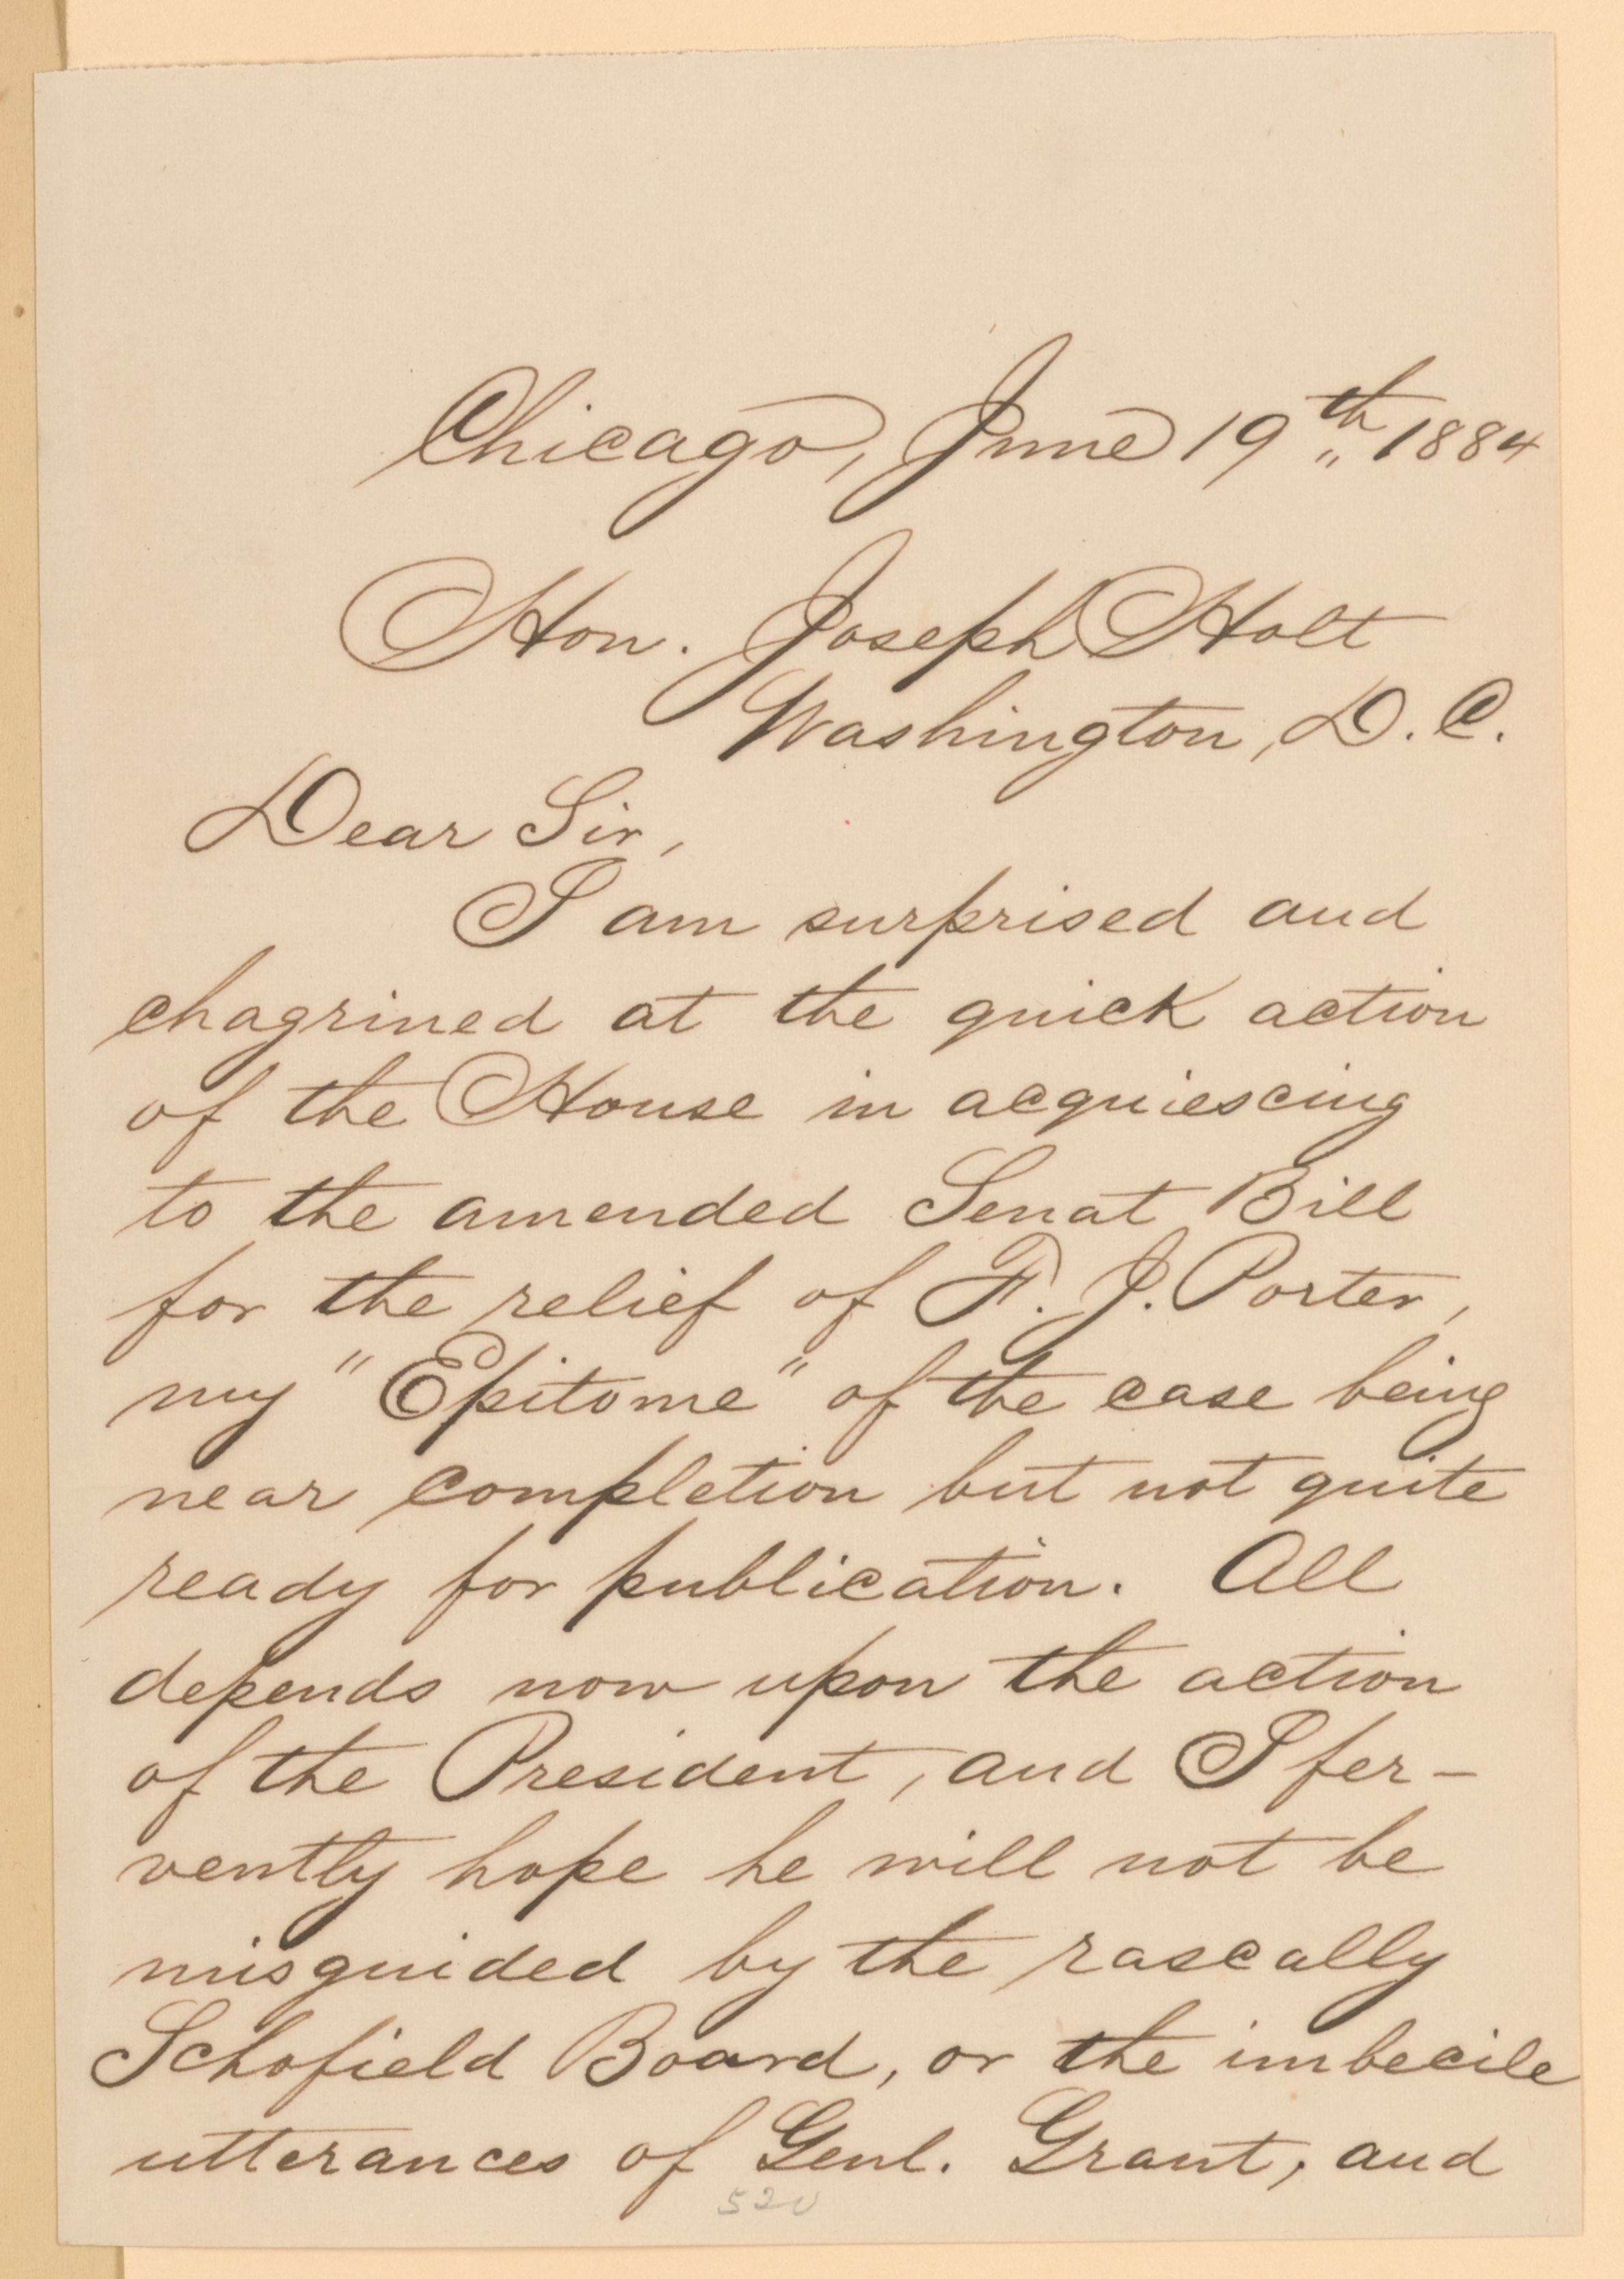 Chicago, June 19th 1884
Hon. Joseph Holt
Washington, D. C.
Dear Sir,
I am surprised and
chagrined at the quick action
of the House in acquiescing
to the amended Senat Bill
for the relief of F. J. Porter,
my "Epitome" of the case being
near completion but not quite
ready for publication. All
depends now upon the action
of the President, and I fer-
vently hope he will not be
misguided by the rascally
Schofield Board, or the imbecile
utterances of Genl. Grant, and
520